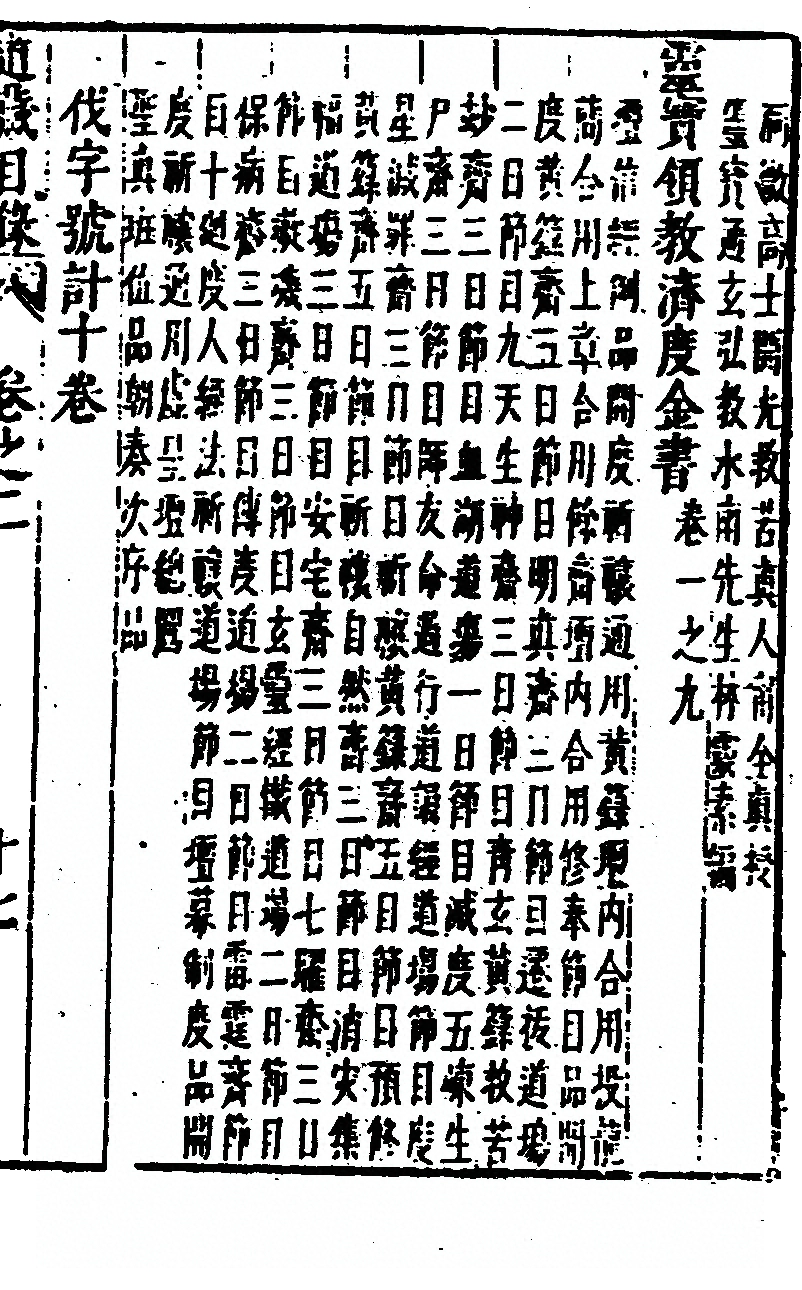 洞微高士開光救苦真人甯全真授
靈寶通玄弘教水南先生林靈素編
靈寶領教濟度金書卷一之九
壇信經例品開度祈禳通用黃籙壇內合用投龍
簡合用上章合用修齋壇內合用修奉節目品開
度黃籙齋五日節目明真齋三日節目遷拔道場
二日節目九天生神齋三日節目青玄黃籙救苦
妙齋三日節目血湖道場一日節目滅度五煉生
尸齋三日節目師友命過行道誦經道場節目度
星滅罪齋三日節目祈禳黃籙齋五日節目預修
黃籙齋五日節目祈禳自然齋三日節目消灾集
福道場三日節目安宅齋三日節目七曜齋三日
節目救災齋三日節目玄靈經懺道場二日節目
保病齋三日節目傳度道場二日節目雷霆齋節
目十迴度人經法祈禳道場節目壇幕制度品開
度祈禳通用虛皇壇總圖
聖真班位品朝奏次序品
伐字號計十卷
道藏目錄 卷之二 十七